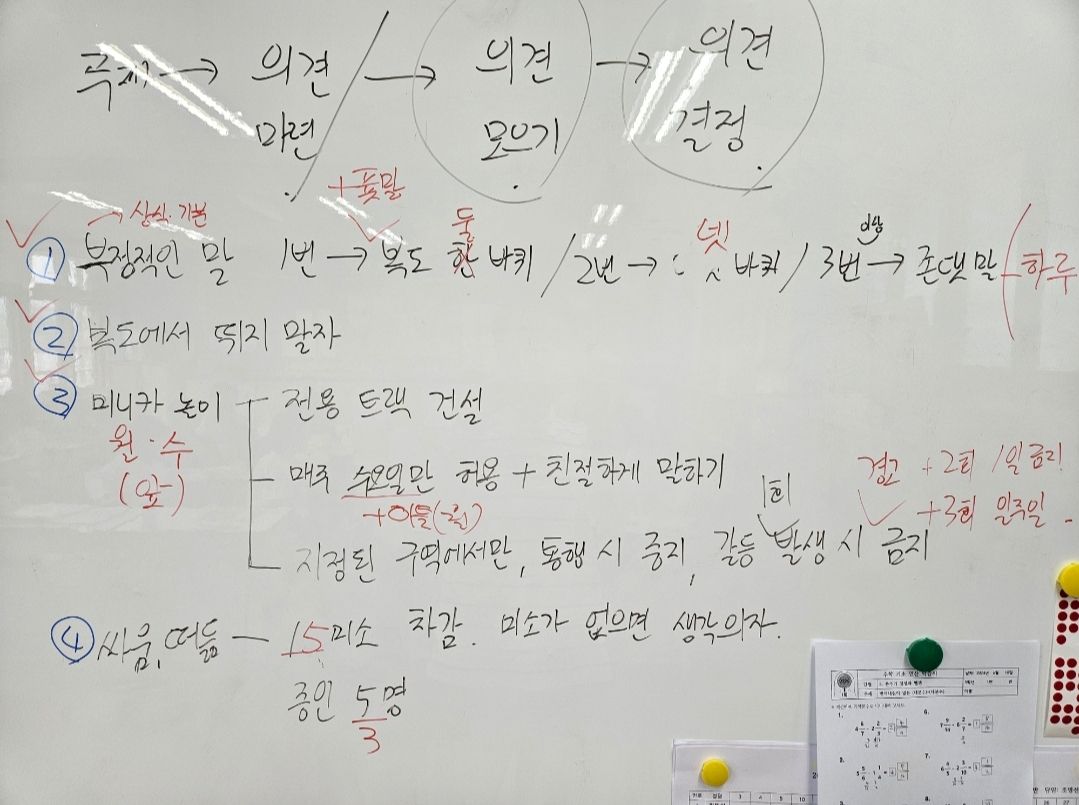 주제 → 의견 → 의견 → 의견
마련 모으기 결정
+푯말
→ 상식·기본 둘 넷 이상
① 부정적인 말 1번 → 복도 한 바퀴 / 2번 → 바퀴 / 3번 → 존댓말 하루
② 복도에서 뛰지 말자
③ 미니카 놀이 전용 트랙 건설
월·수
(앞)
매주 수요일만 허용 + 친절하게 말하기
경고 +2회 1일 금지
1회
+3회 일주일
지정된 구역에서만, 통행 시 중지, 갈등 발생 시 금지
④ 싸움, 떠듦 — 15미소 차감. 미소가 없으면 생각의자.
증인 5명
3